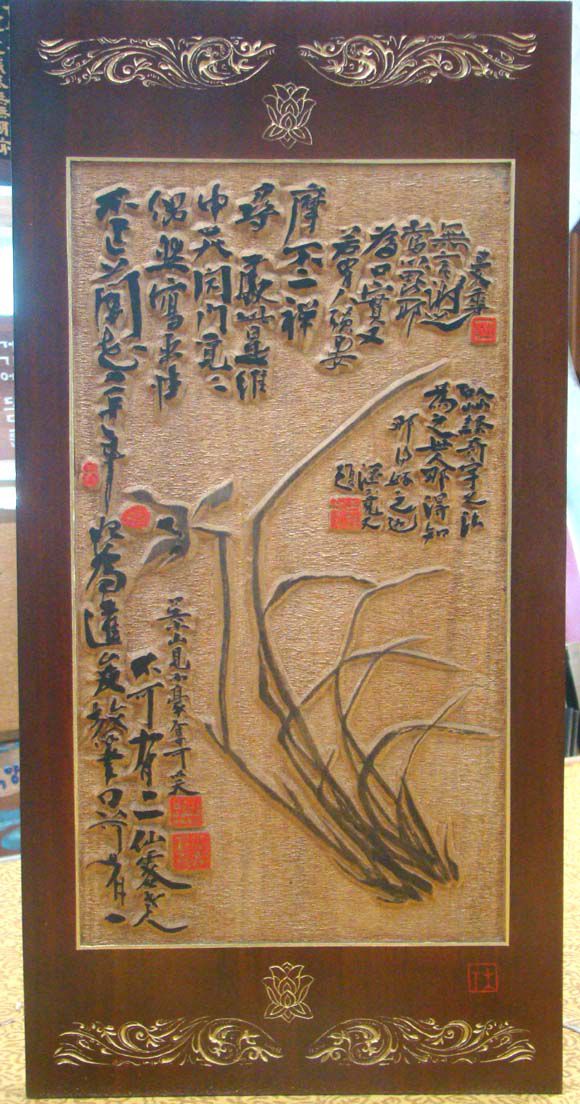 不作蘭畵二十年
偶然寫出性
中天閉門覓覓
尋尋處此是維
摩不二禪
若有人强要
爲口實又
當以毘耶
無言謝之
曼香
以草隸奇字之法
爲之世人那得知
那得好之也
漚竟又
題
始爲達俊放筆只可有一
不可有二仙客老人
吳小山見而豪奪可笑